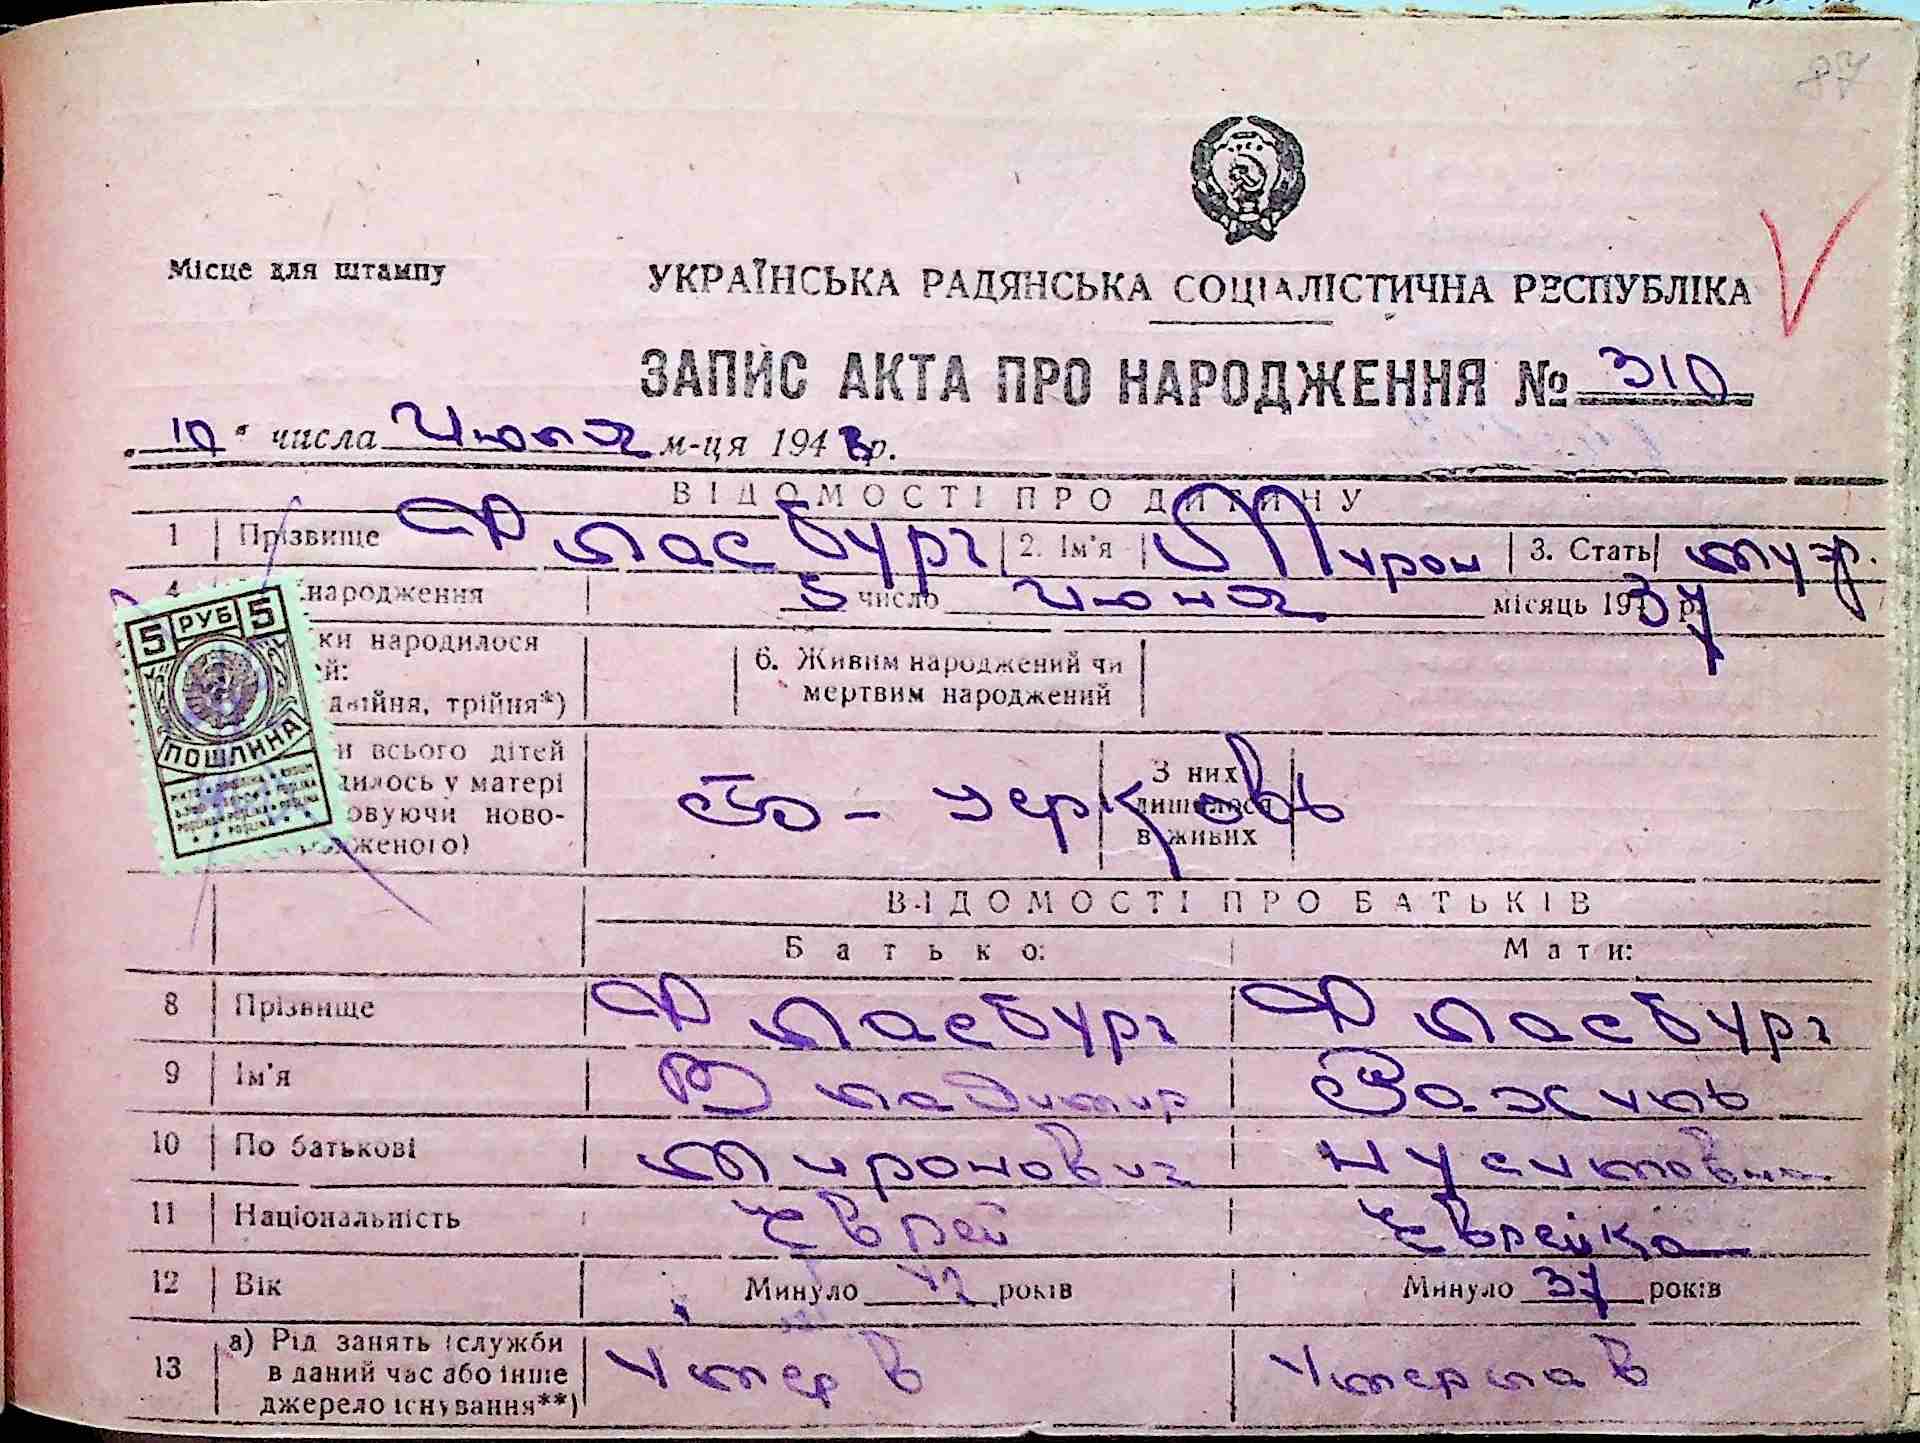 87
Місце для штампу
УКРАЇНСЬКА РАДЯНСЬКА СОЦІАЛІСТИЧНА РЕСПУБЛІКА
ЗАПИС АКТА ПРО НАРОДЖЕННЯ № 310
„10“ числа Июля м-ця 1948 р.
ВІДОМОСТІ ПРО ДИТИНУ
1 Прізвище Фласбург 2. Ім'я Мирон 3. Стать муж.
4 народження 5 число Июня місяць 1937 р.
ки народилося
й:
двійня, трійня*)
6. Живим народжений чи
мертвим народжений
и всього дітей
илось у матері
овуючи ново-
женого)
З них
лишилося
в живих
5 РУБ 5
ПОШЛИНА
ВІДОМОСТІ ПРО БАТЬКІВ
Батько: Мати:
8 Прізвище Фласбург Фласбург
9 Ім'я Владимир
10 По батькові Миронович
11 Національність Еврей Еврейка
12 Вік Минуло 42 років Минуло 37 років
13 а) Рід занять (служби
в даний час або інше
джерело існування**)